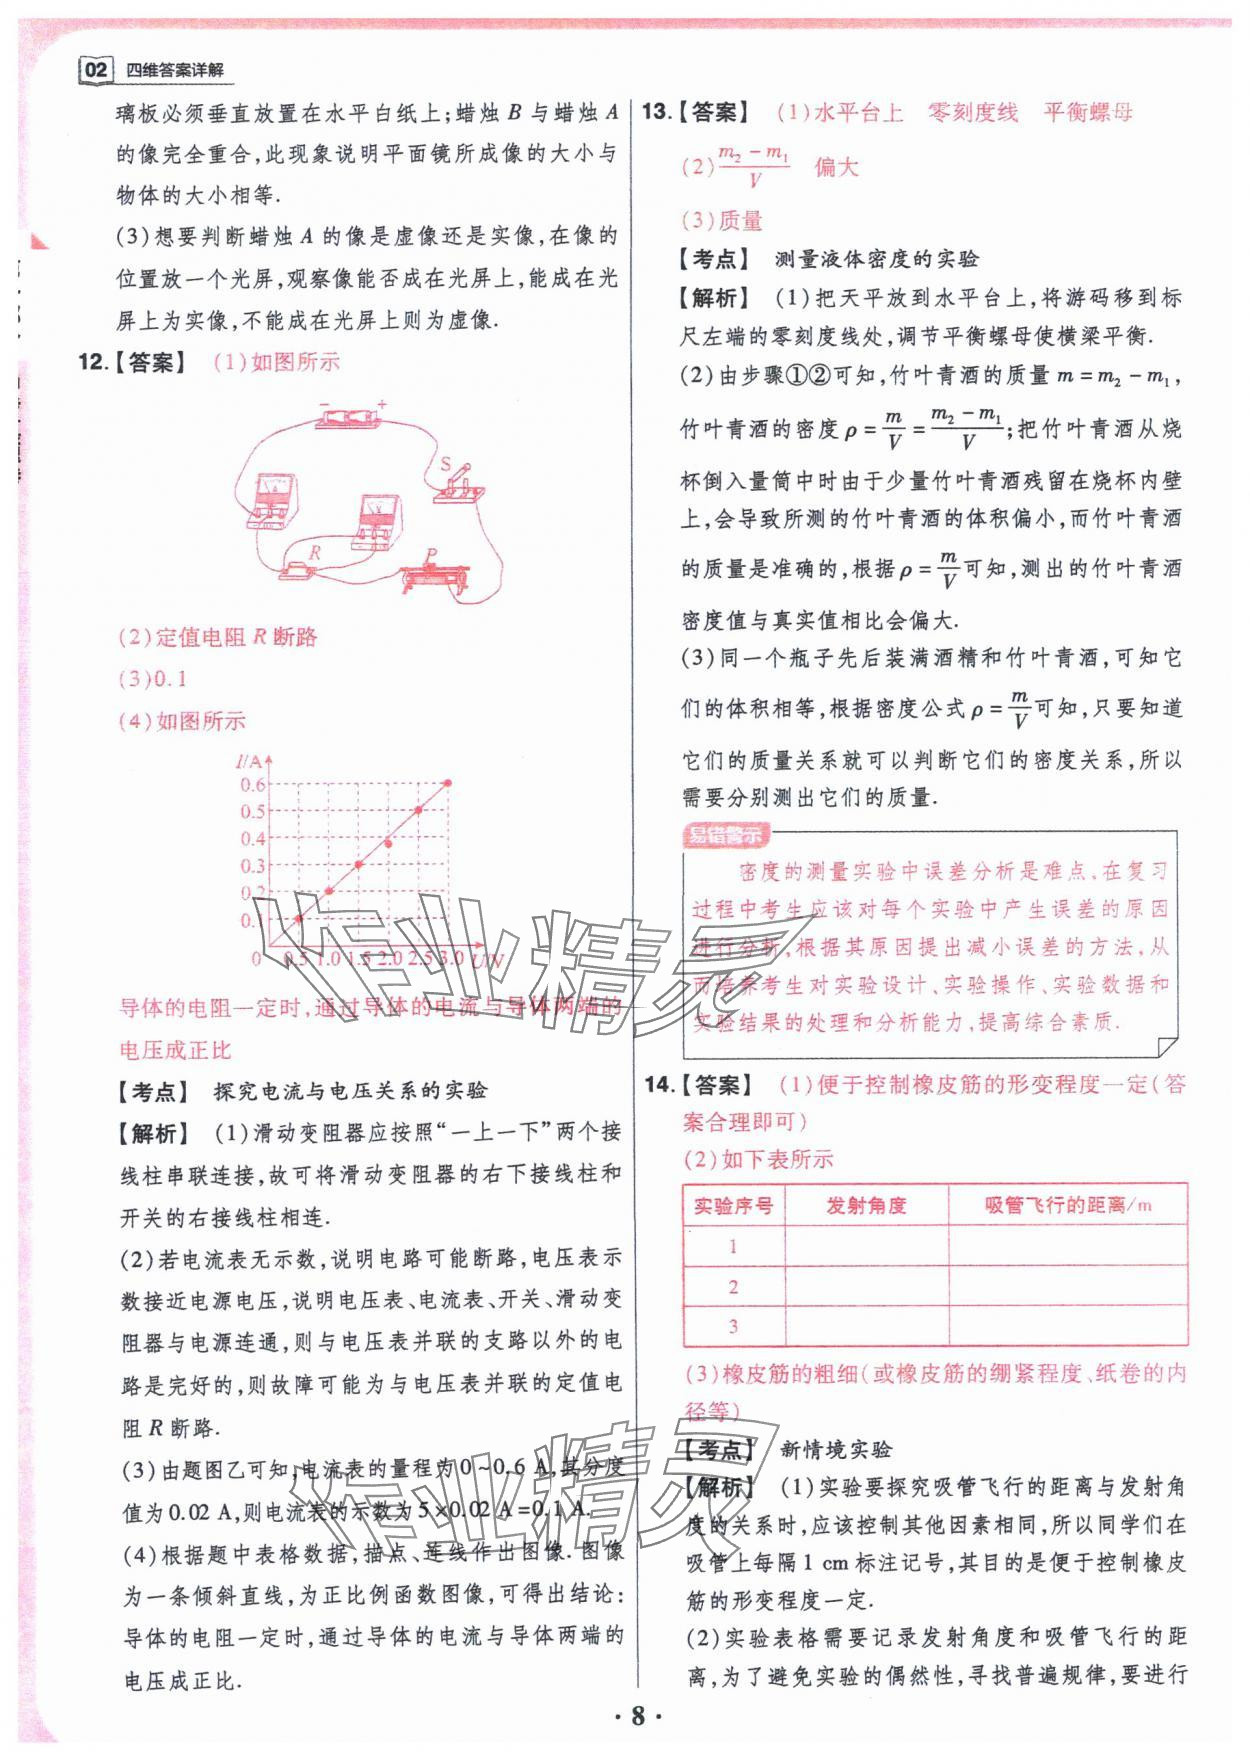 02 四维答案详解
璃板必须垂直放置在水平白纸上;蜡烛 B 与蜡烛 A
的像完全重合,此现象说明平面镜所成像的大小与
物体的大小相等.
(3)想要判断蜡烛 A 的像是虚像还是实像,在像的
位置放一个光屏,观察像能否成在光屏上,能成在光
屏上为实像,不能成在光屏上则为虚像.
12.【答案】 (1)如图所示
− +
S
R P
(2)定值电阻 R 断路
(3)0.1
(4)如图所示
I/A
0.6
0.5
0.4
0.3
0.2
0.1
0 0.5 1.0 1.5 2.0 2.5 3.0 U/V
导体的电阻一定时,通过导体的电流与导体两端的
电压成正比
【考点】 探究电流与电压关系的实验
【解析】 (1)滑动变阻器应按照“一上一下”两个接
线柱串联连接,故可将滑动变阻器的右下接线柱和
开关的右接线柱相连.
(2)若电流表无示数,说明电路可能断路,电压表示
数接近电源电压,说明电压表、电流表、开关、滑动变
阻器与电源连通,则与电压表并联的支路以外的电
路是完好的,则故障可能为与电压表并联的定值电
阻 R 断路.
(3)由题图乙可知,电流表的量程为 0~0.6 A,其分度
值为 0.02 A,则电流表的示数为 5×0.02 A=0.1 A.
(4)根据题中表格数据,描点、连线作出图像.图像
为一条倾斜直线,为正比例函数图像,可得出结论:
导体的电阻一定时,通过导体的电流与导体两端的
电压成正比.
13.【答案】 (1)水平台上 零刻度线 平衡螺母
(2)$\frac{m_2-m_1}{V}$ 偏大
(3)质量
【考点】 测量液体密度的实验
【解析】 (1)把天平放到水平台上,将游码移到标
尺左端的零刻度线处,调节平衡螺母使横梁平衡.
(2)由步骤①②可知,竹叶青酒的质量 $m=m_2-m_1$,
竹叶青酒的密度 $\rho=\frac{m}{V}=\frac{m_2-m_1}{V}$;把竹叶青酒从烧
杯倒入量筒中时由于少量竹叶青酒残留在烧杯内壁
上,会导致所测的竹叶青酒的体积偏小,而竹叶青酒
的质量是准确的,根据 $\rho=\frac{m}{V}$可知,测出的竹叶青酒
密度值与真实值相比会偏大.
(3)同一个瓶子先后装满酒精和竹叶青酒,可知它
们的体积相等,根据密度公式 $\rho=\frac{m}{V}$可知,只要知道
它们的质量关系就可以判断它们的密度关系,所以
需要分别测出它们的质量.
易错警示
密度的测量实验中误差分析是难点,在复习
过程中考生应该对每个实验中产生误差的原因
进行分析,根据其原因提出减小误差的方法,从
而培养考生对实验设计、实验操作、实验数据和
实验结果的处理和分析能力,提高综合素质.
14.【答案】 (1)便于控制橡皮筋的形变程度一定(答
案合理即可)
(2)如下表所示
实验序号 发射角度 吸管飞行的距离/m
1
2
3
(3)橡皮筋的粗细(或橡皮筋的绷紧程度、纸卷的内
径等)
【考点】 新情境实验
【解析】 (1)实验要探究吸管飞行的距离与发射角
度的关系时,应该控制其他因素相同,所以同学们在
吸管上每隔 1 cm 标注记号,其目的是便于控制橡皮
筋的形变程度一定.
(2)实验表格需要记录发射角度和吸管飞行的距
离,为了避免实验的偶然性,寻找普遍规律,要进行
作业精灵
作业精灵
· 8 ·